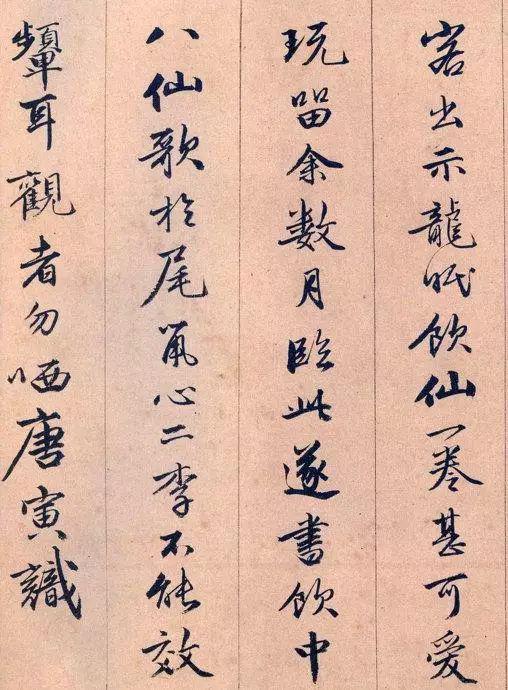 出示龍眠飲仙一卷甚可愛
玩留余数月臨此遂書飲中
八仙歌於尾心二李不能效
顰耳觀者勿哂唐寅識